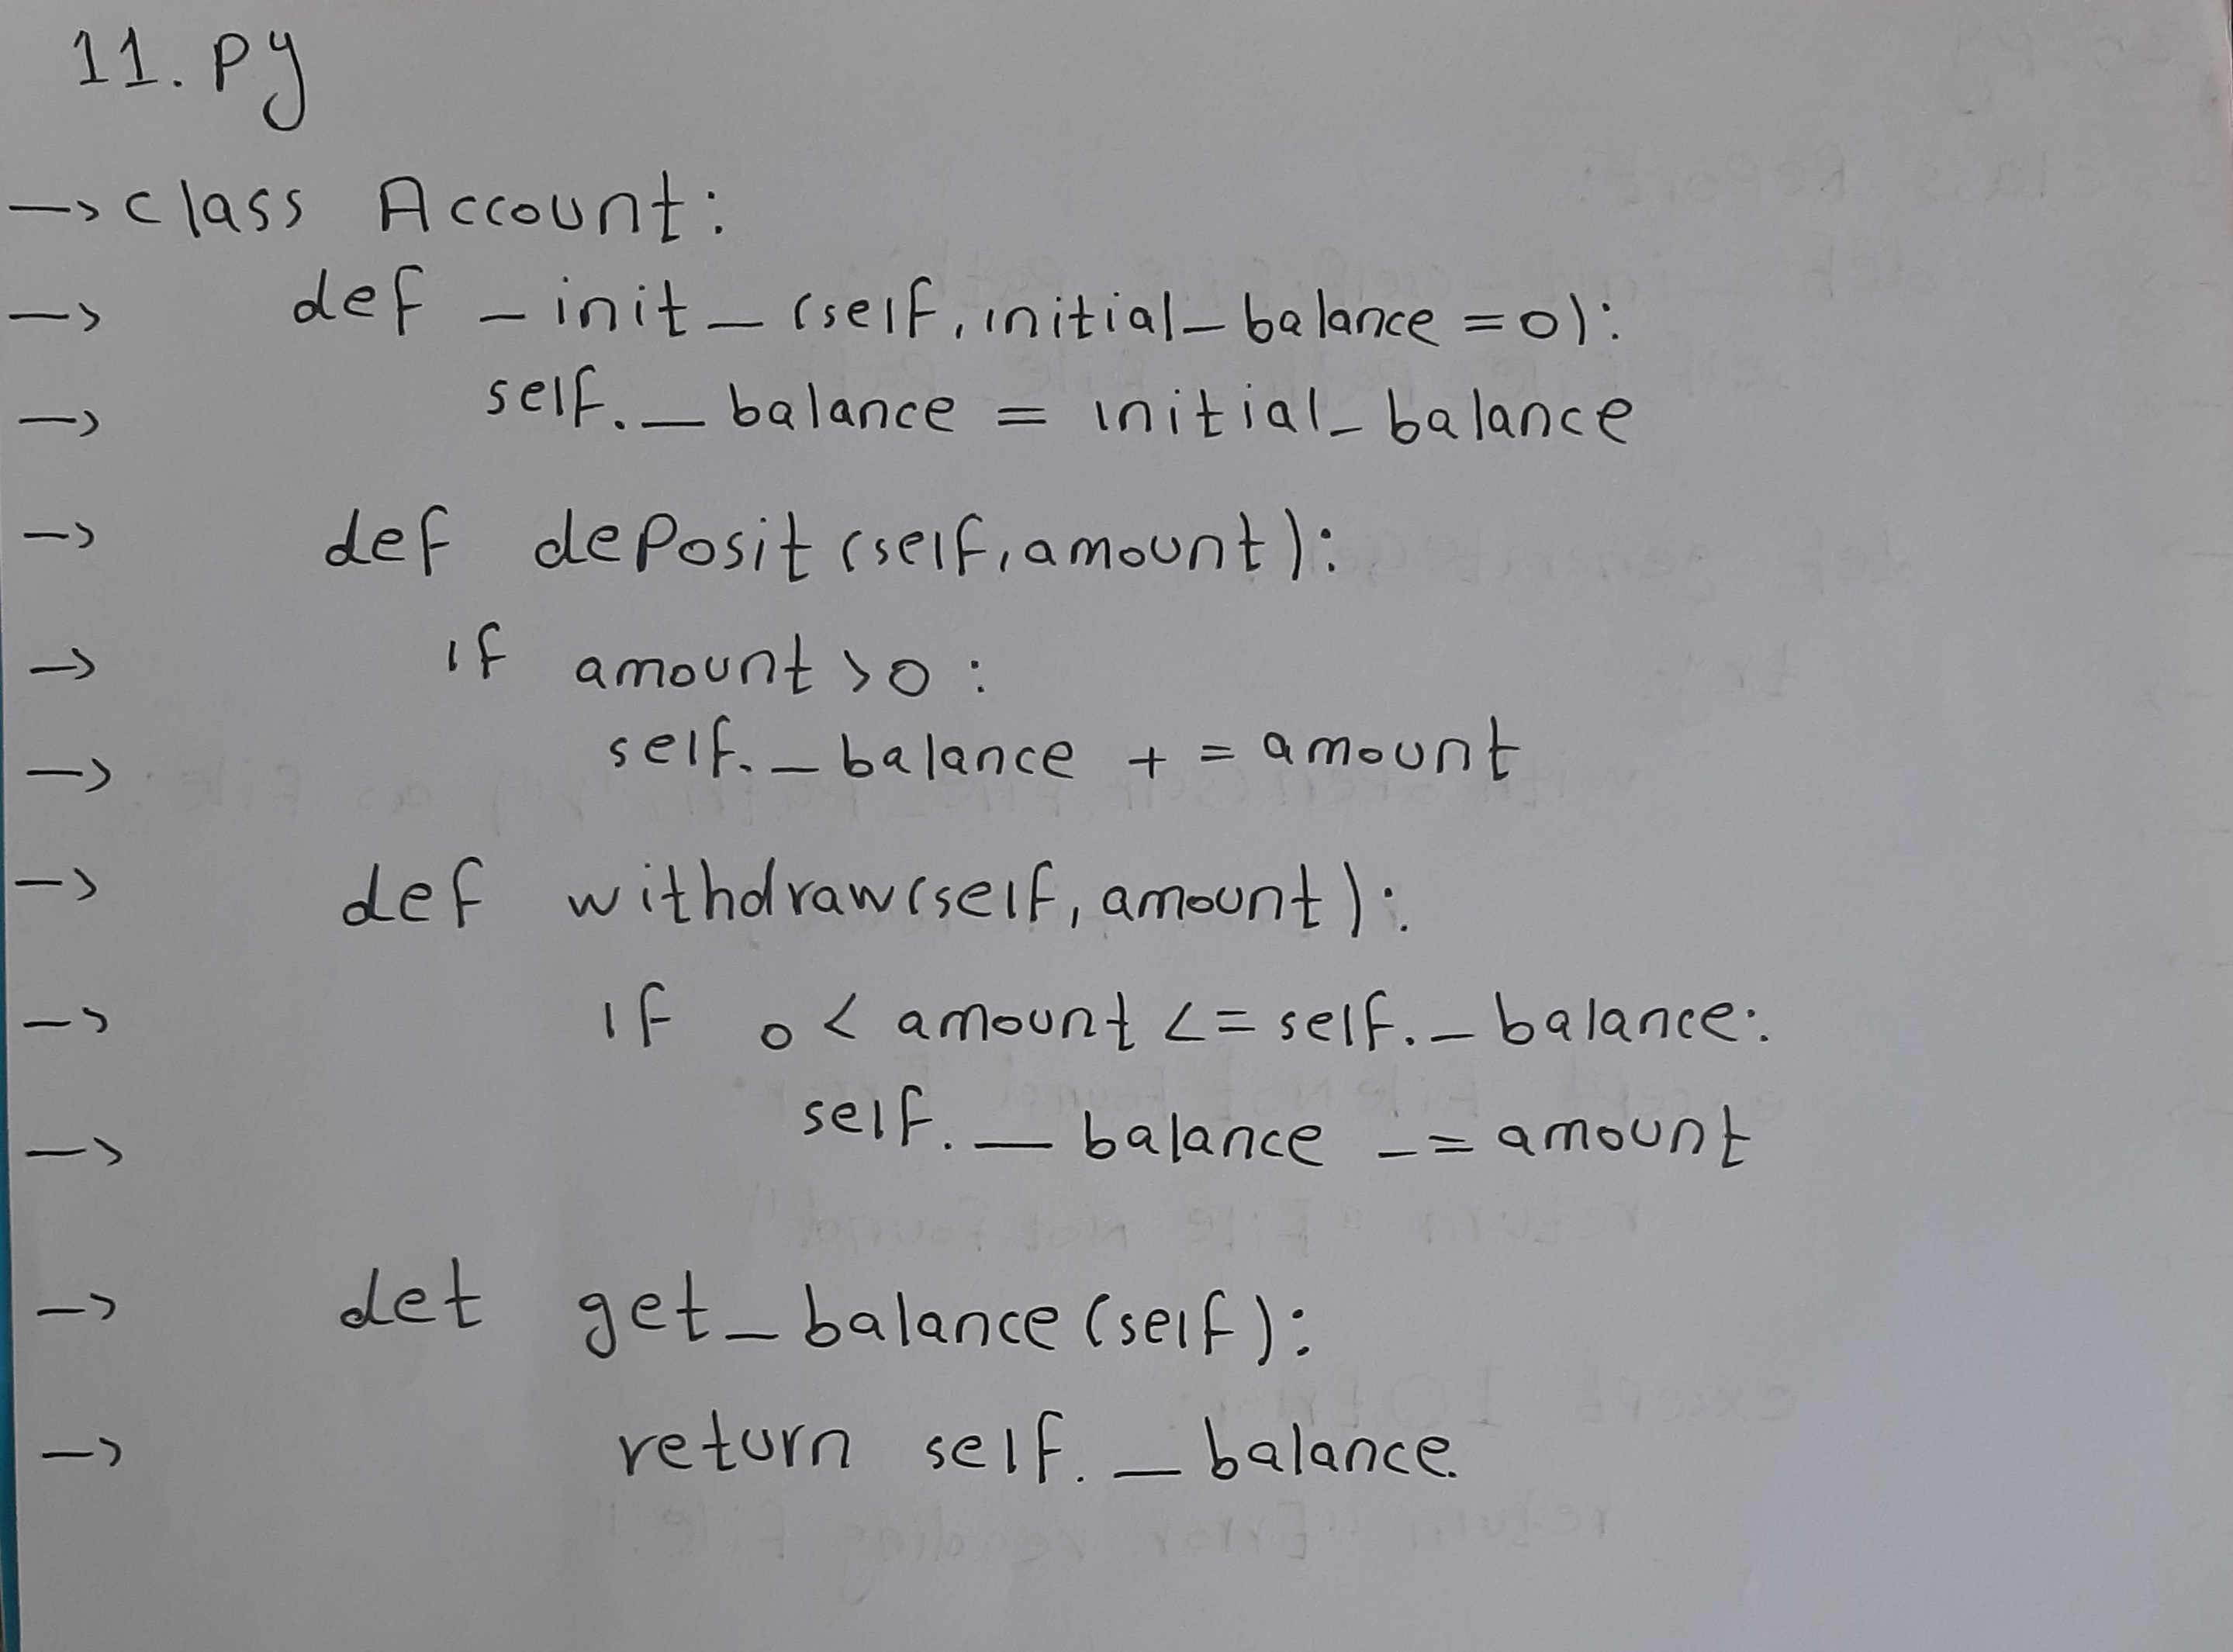 11. py
-> class Account:
-> def _init_ (self, initial_balance = 0):
-> self._balance = initial_balance
-> def deposit (self, amount):
-> if amount > 0 :
-> self._balance += amount
-> def withdraw(self, amount):
-> if 0 < amount <= self._balance:
-> self._balance -= amount
-> det get_balance (self):
-> return self._balance.